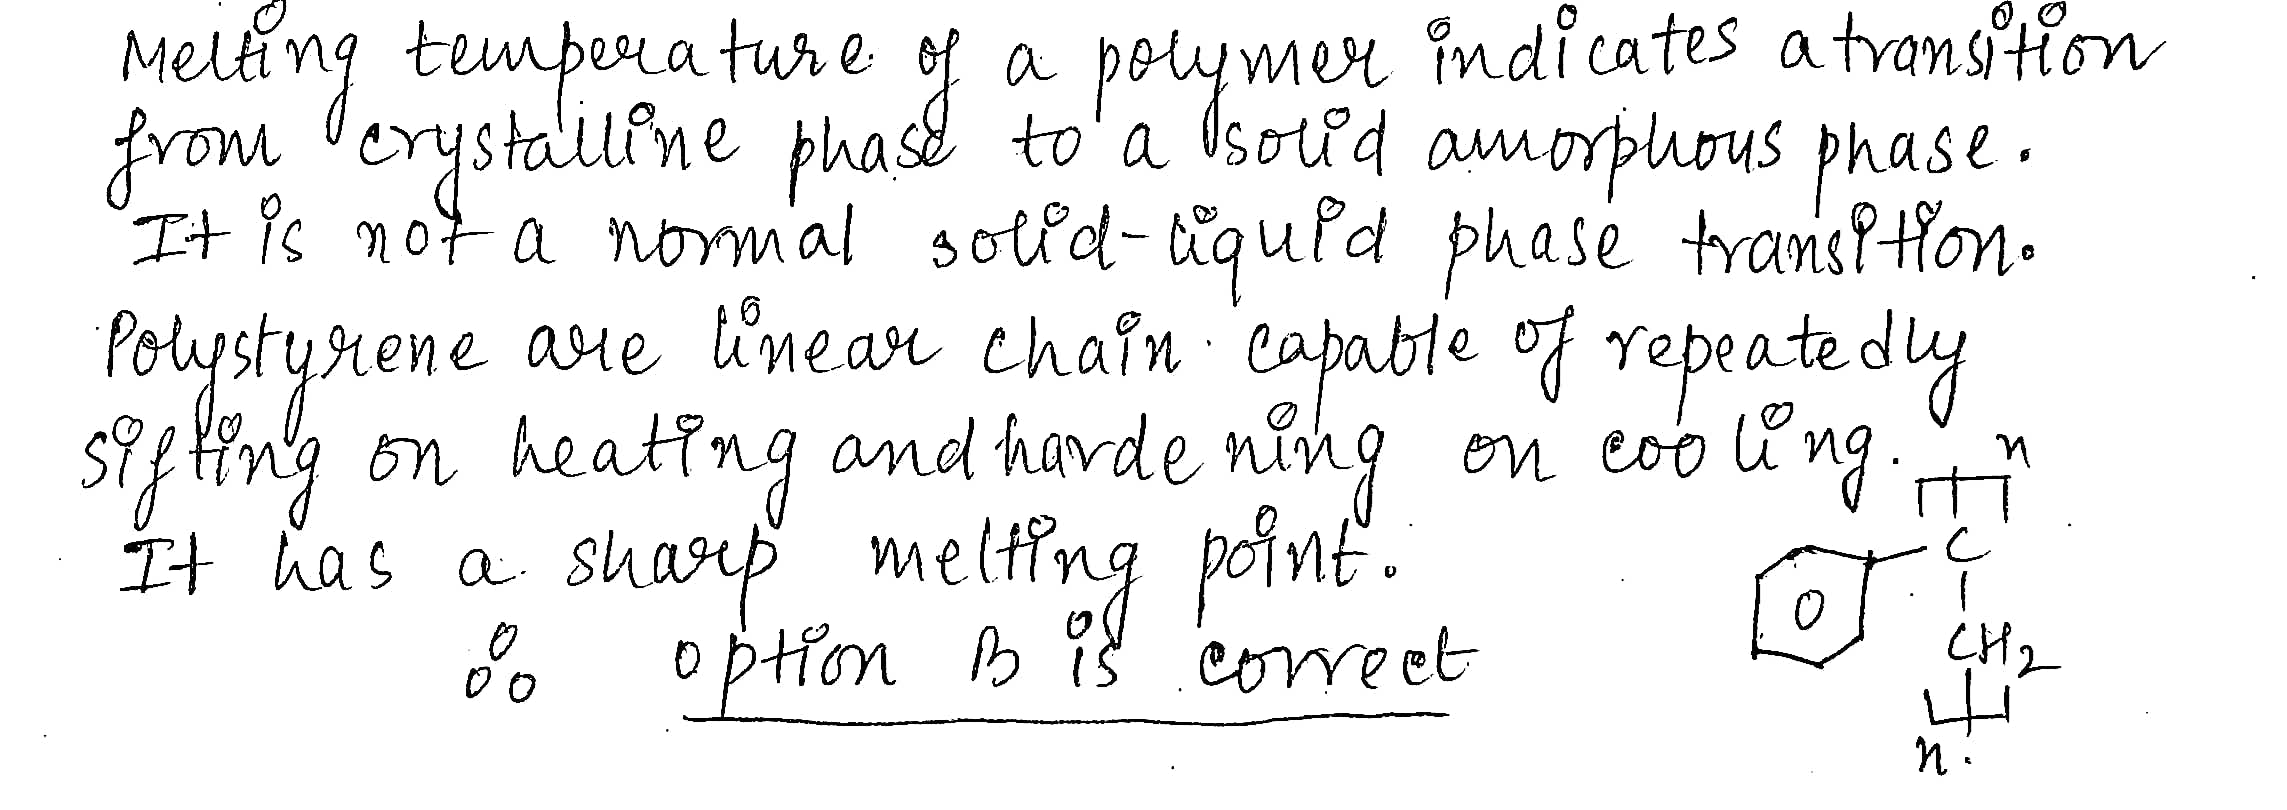 Melting temperature of a polymer indicates a transition
from crystalline phase to a solid amorphous phase.
It is not a normal solid-liquid phase transition.
Polystyrene are linear chain capable of repeatedly
sifting on heating and hardening on cooling.
It has a sharp melting point.
∴ option B is correct
n
C
CH2
n.